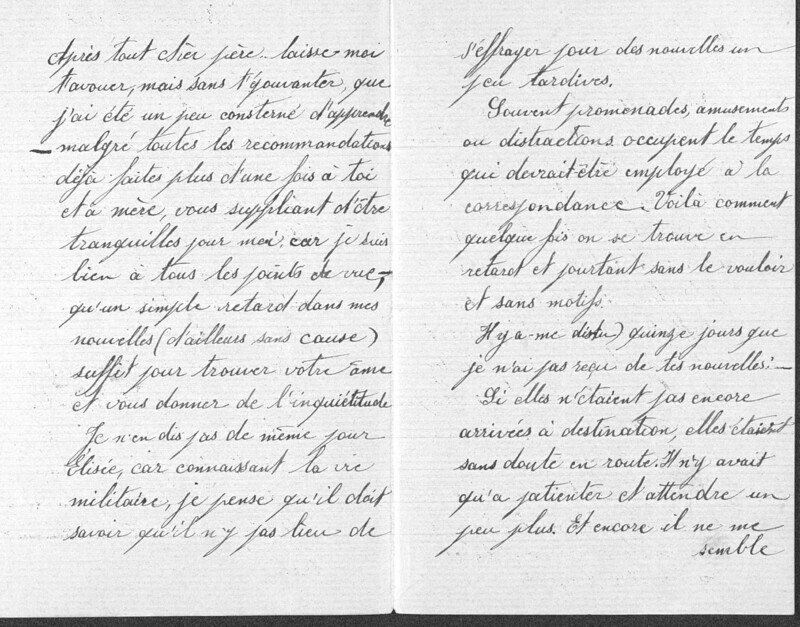 Après tout cher père laisse moi
t'avouer, mais sans t'épouvanter, que
j'ai été un peu consterné d'apprendre
— malgré toutes les recommandations
déjà faites plus d'une fois à toi
et à mère, vous suppliant d'être
tranquilles pour moi, car je suis
bien à tous les points de vue —,
qu'un simple retard dans mes
nouvelles (d'ailleurs sans cause)
suffit pour trouver votre âme
et vous donner de l'inquiétitude
Je n'en dis pas de même pour
Élisée, car connaissant la vie
militaire, je pense qu'il doit
savoir qu'il n'y pas lieu de
s'effrayer pour des nouvelles un
peu tardives.
Souvent promenades, amusements
ou distractions occupent le temps
qui devrait être employé à la
correspondance. Voilà comment
quelque fois on se trouve en
retard et pourtant sans le vouloir
et sans motifs.
Il y a — me dis tu) quinze jours que
je n'ai pas reçu de tes nouvelles: —
Si elles n'étaient pas encore
arrivées à destination, elles étaient
sans doute en route. Il n'y avait
qu'a patienter et attendre un
peu plus. Et encore il ne me
semble